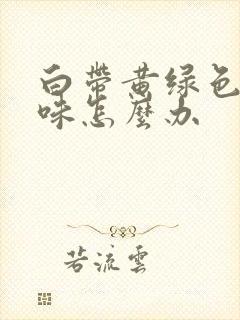 白帶黄绿色
味怎麼办
若流雲